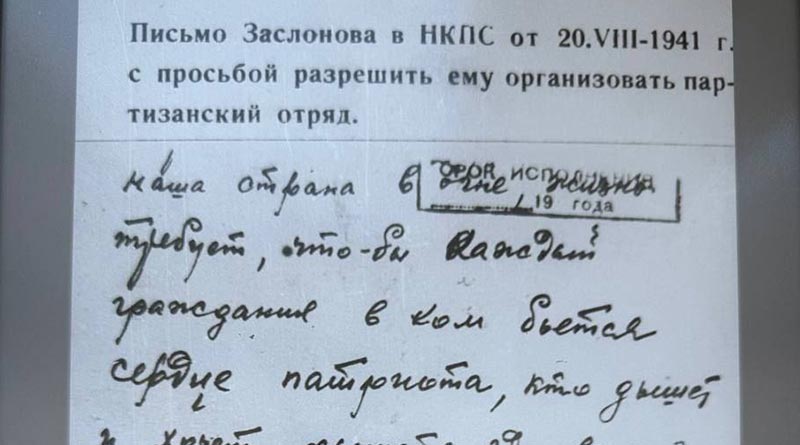 Письмо Заслонова в НКПС от 20.VIII-1941 г.
с просьбой разрешить ему организовать пар-
тизанский отряд.
СРОК ИСПОЛНЕНИЯ
19 года
наша страна в огне жизнь
требует, что-бы каждый
гражданин в ком бьется
сердце патриота, кто дышет
и